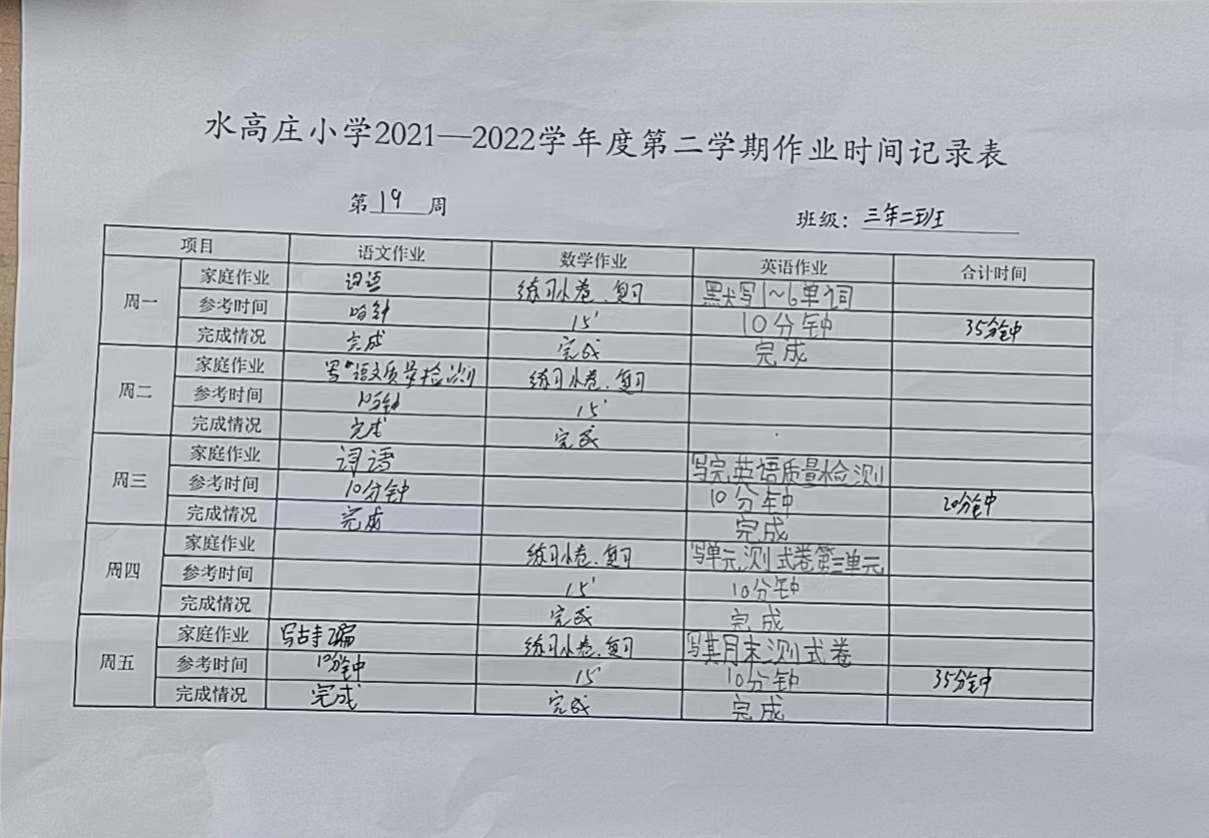 水高庄小学2021—2022学年度第二学期作业时间记录表
第19周 班级：三年二班
项目 语文作业 数学作业 英语作业 合计时间
周一 家庭作业 词语 练习小卷、复习 默写1~6单词
参考时间 15' 10分钟 35分钟
完成情况 完成 完成 完成
周二 家庭作业 写"语文质量检测 练习小卷、复习
参考时间 10分钟 15'
完成情况 完成 完成
周三 家庭作业 词语 写完英语质量检测
参考时间 10分钟 10分钟 20分钟
完成情况 完成 完成
周四 家庭作业 练习小卷、复习 写单元测式卷第三单元
参考时间 15' 10分钟
完成情况 完成 完成
周五 家庭作业 写古诗2篇 练习小卷、复习 写其月末测式卷
参考时间 10分钟 15' 10分钟 35分钟
完成情况 完成 完成 完成